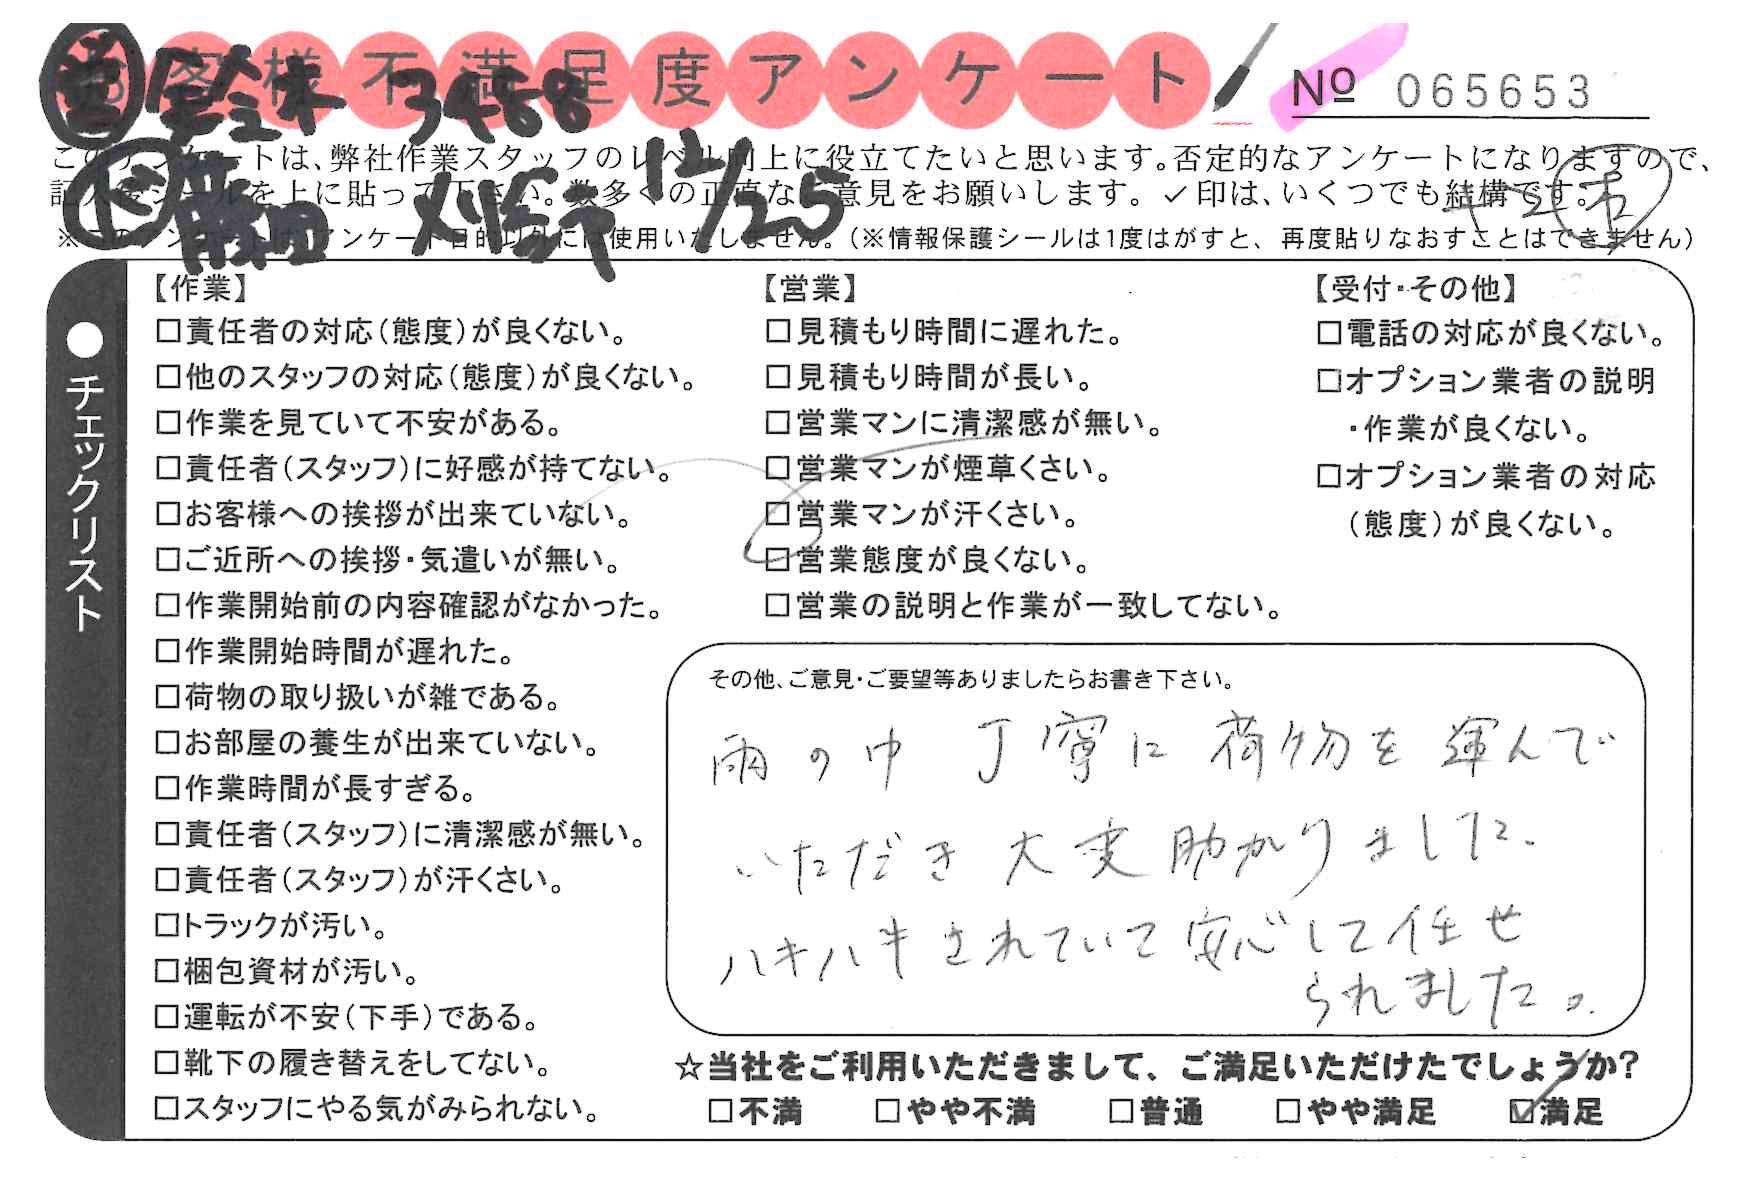 お客様不満足度アンケート
№ 065653
営 鈴木 3488
作 藤田 刈谷 12/25
このアンケートは、弊社作業スタッフのレベル向上に役立てたいと思います。否定的なアンケートになりますので、
記入後シールを上に貼って下さい。数多くの正直なご意見をお願いします。✓印は、いくつでも結構です。
※このアンケートは、アンケート目的以外には使用いたしません。(※情報保護シールは1度はがすと、再度貼りなおすことはできません)
●チェックリスト
【作業】
□責任者の対応(態度)が良くない。
□他のスタッフの対応(態度)が良くない。
□作業を見ていて不安がある。
□責任者(スタッフ)に好感が持てない。
□お客様への挨拶が出来ていない。
□ご近所への挨拶・気遣いが無い。
□作業開始前の内容確認がなかった。
□作業開始時間が遅れた。
□荷物の取り扱いが雑である。
□お部屋の養生が出来ていない。
□作業時間が長すぎる。
□責任者(スタッフ)に清潔感が無い。
□責任者(スタッフ)が汗くさい。
□トラックが汚い。
□梱包資材が汚い。
□運転が不安(下手)である。
□靴下の履き替えをしてない。
□スタッフにやる気がみられない。
【営業】
□見積もり時間に遅れた。
□見積もり時間が長い。
□営業マンに清潔感が無い。
□営業マンが煙草くさい。
□営業マンが汗くさい。
□営業態度が良くない。
□営業の説明と作業が一致してない。
【受付・その他】
□電話の対応が良くない。
□オプション業者の説明
・作業が良くない。
□オプション業者の対応
(態度)が良くない。
その他、ご意見・ご要望等ありましたらお書き下さい。
雨の中 丁寧に荷物を運んで
いただき大変助かりました。
ハキハキされていて安心して任せ
られました。
☆当社をご利用いただきまして、ご満足いただけたでしょうか?
□不満 □やや不満 □普通 □やや満足 ☑満足